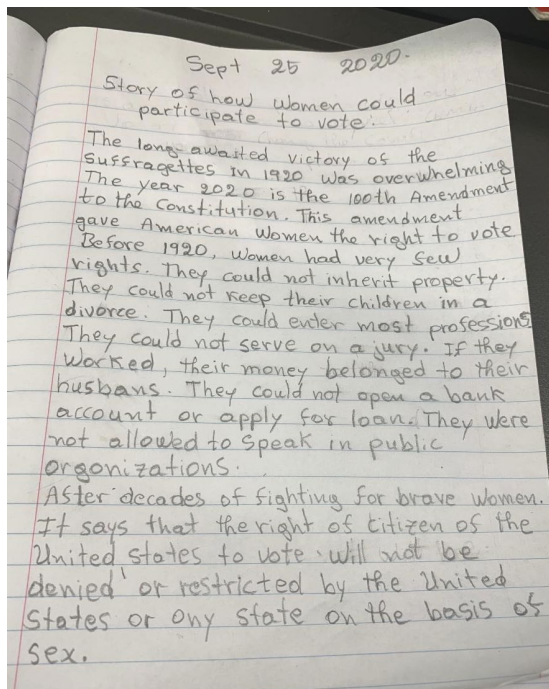 Sept 25 2020.
Story of how women could
participate to vote.
The long-awaited victory of the
Suffragettes in 1920 was overwhelming
The year 2020 is the 100th Amendment
to the Constitution. This amendment
gave American Women the right to vote
Before 1920, women had very few
rights. They could not inherit property.
They could not keep their children in a
divorce. They could enter most professions
They could not serve on a jury. If they
worked, their money belonged to their
husbans. They could not open a bank
account or apply for loan. They were
not allowed to speak in public
orgonizations.
After decades of fighting for brave women.
It says that the right of citizen of the
United states to vote will not be
denied or restricted by the United
States or ony state on the basis of
sex.